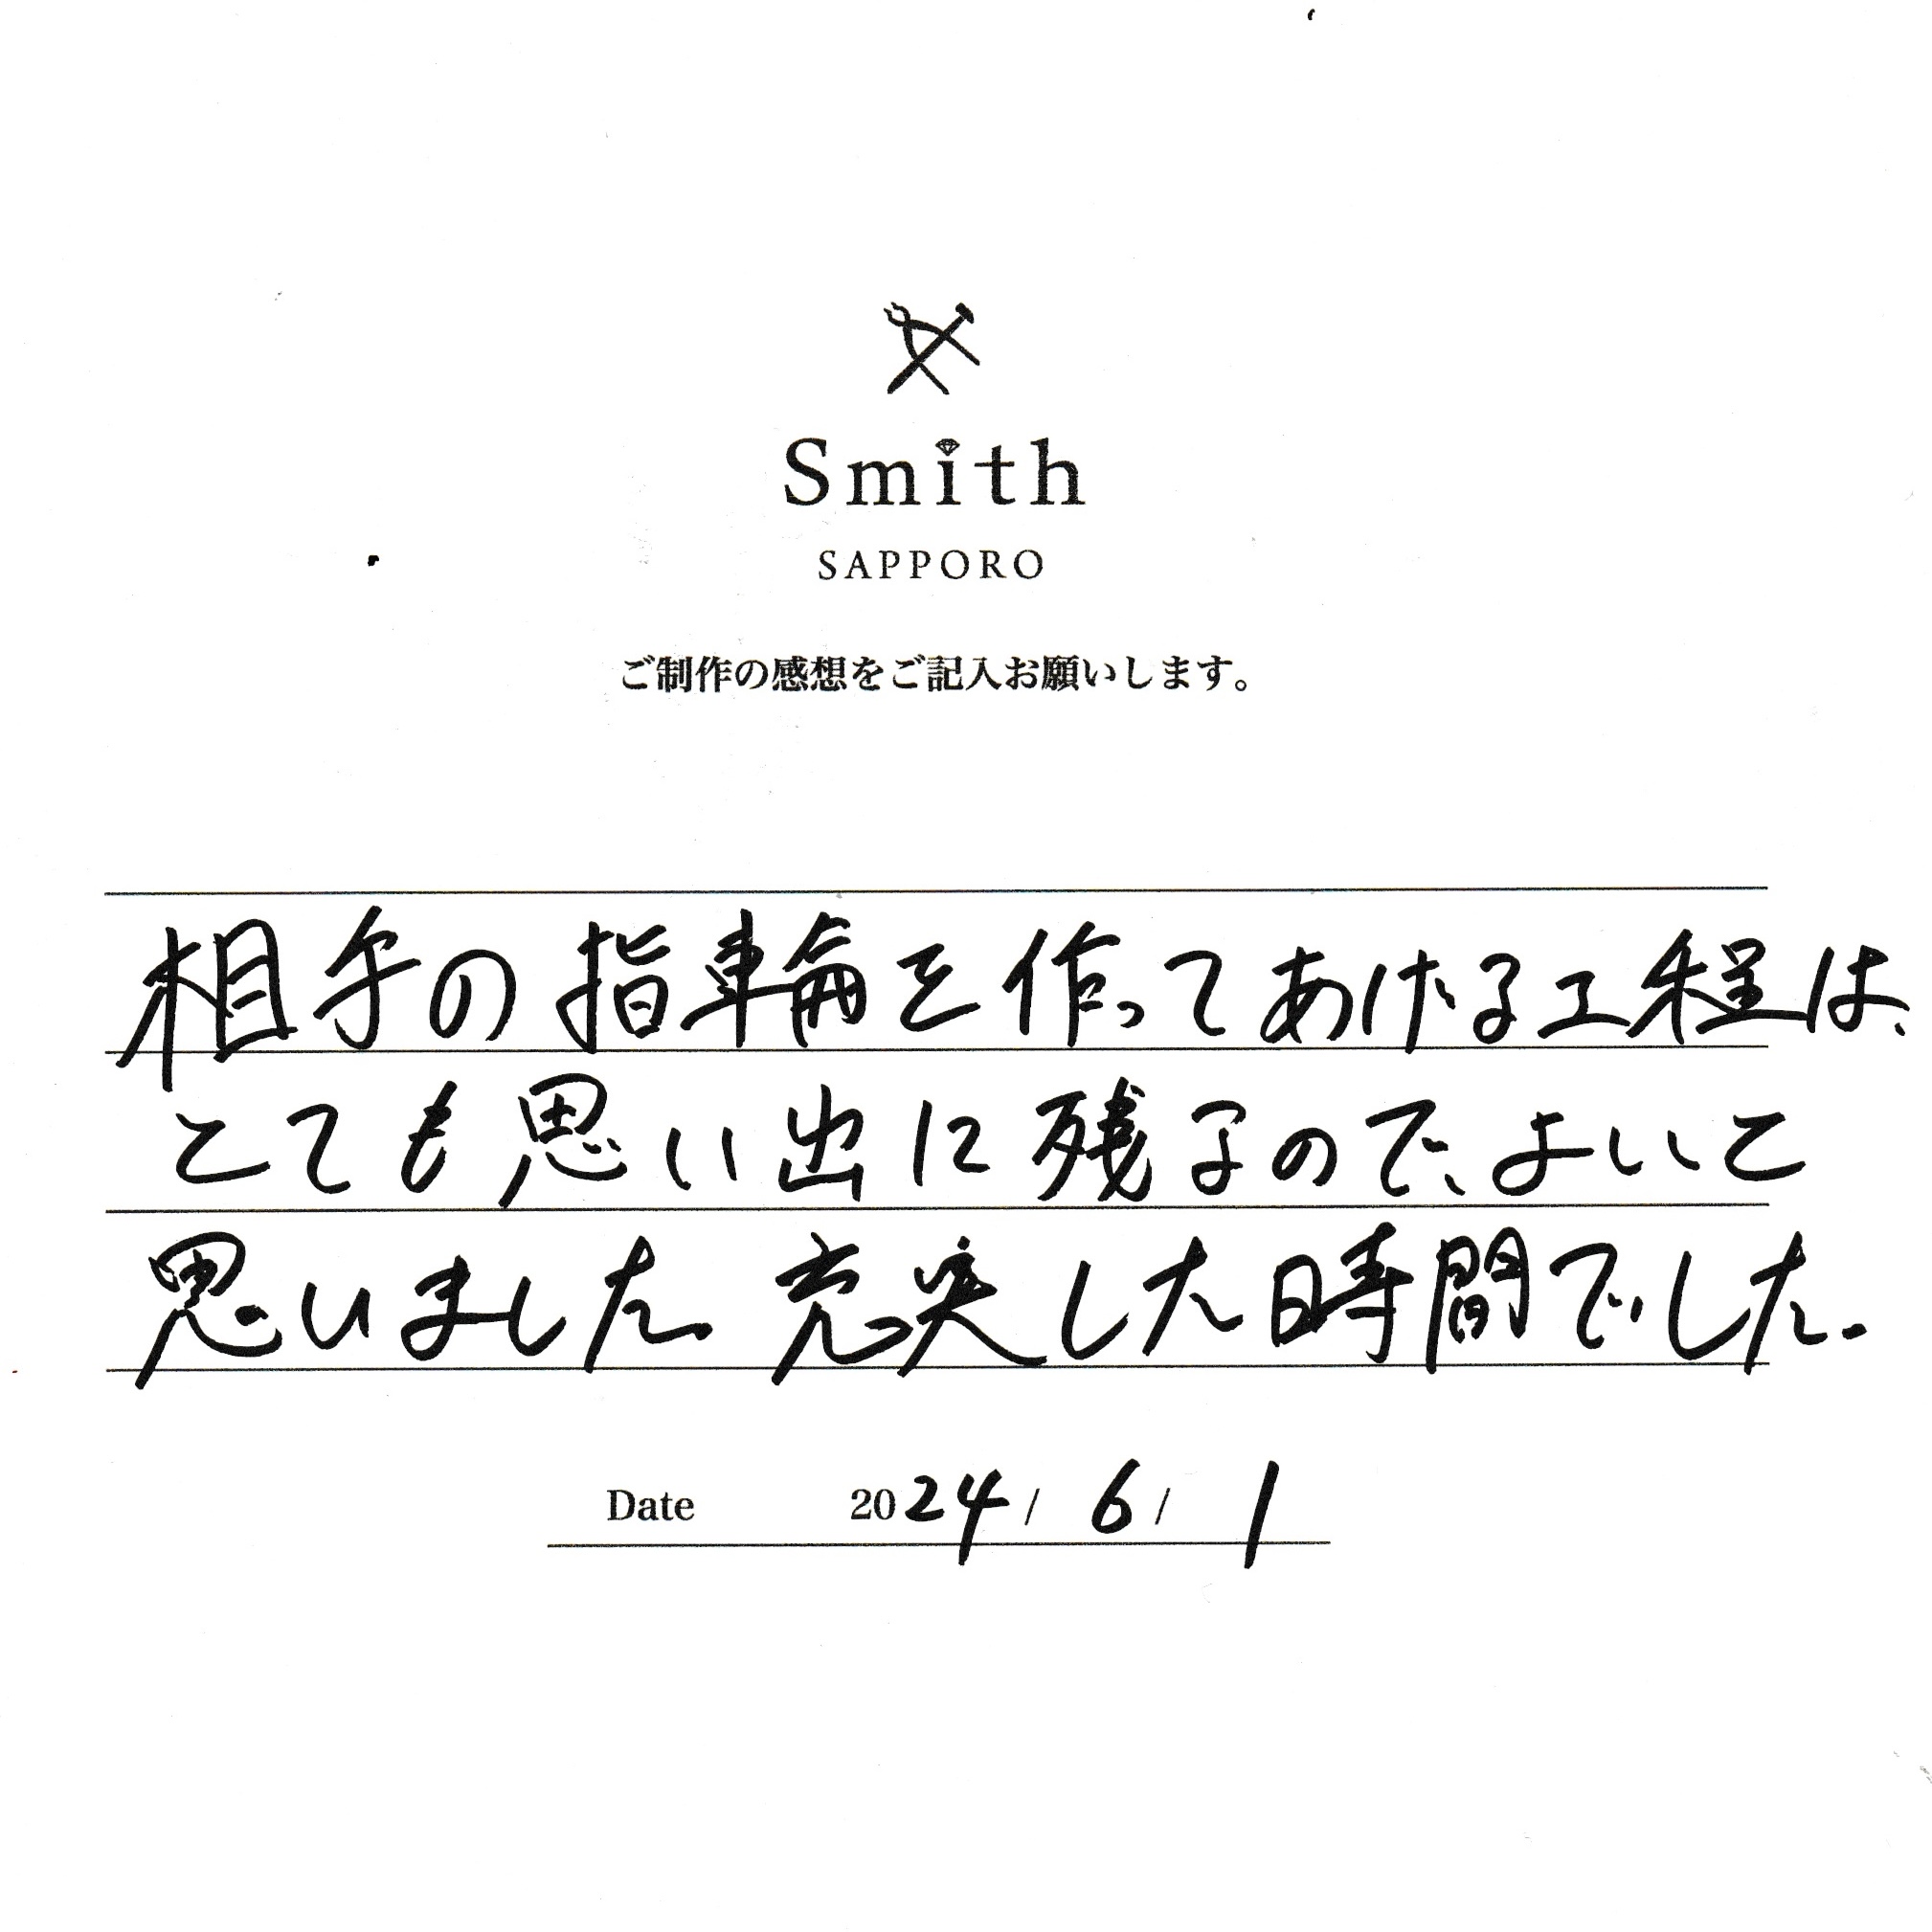 Smith
SAPPORO
ご制作の感想をご記入お願いします。
相手の指輪を作ってあげる工程は、
とても思い出に残るので、よいと
思いました 充実した時間でした.
Date 2024/6/1